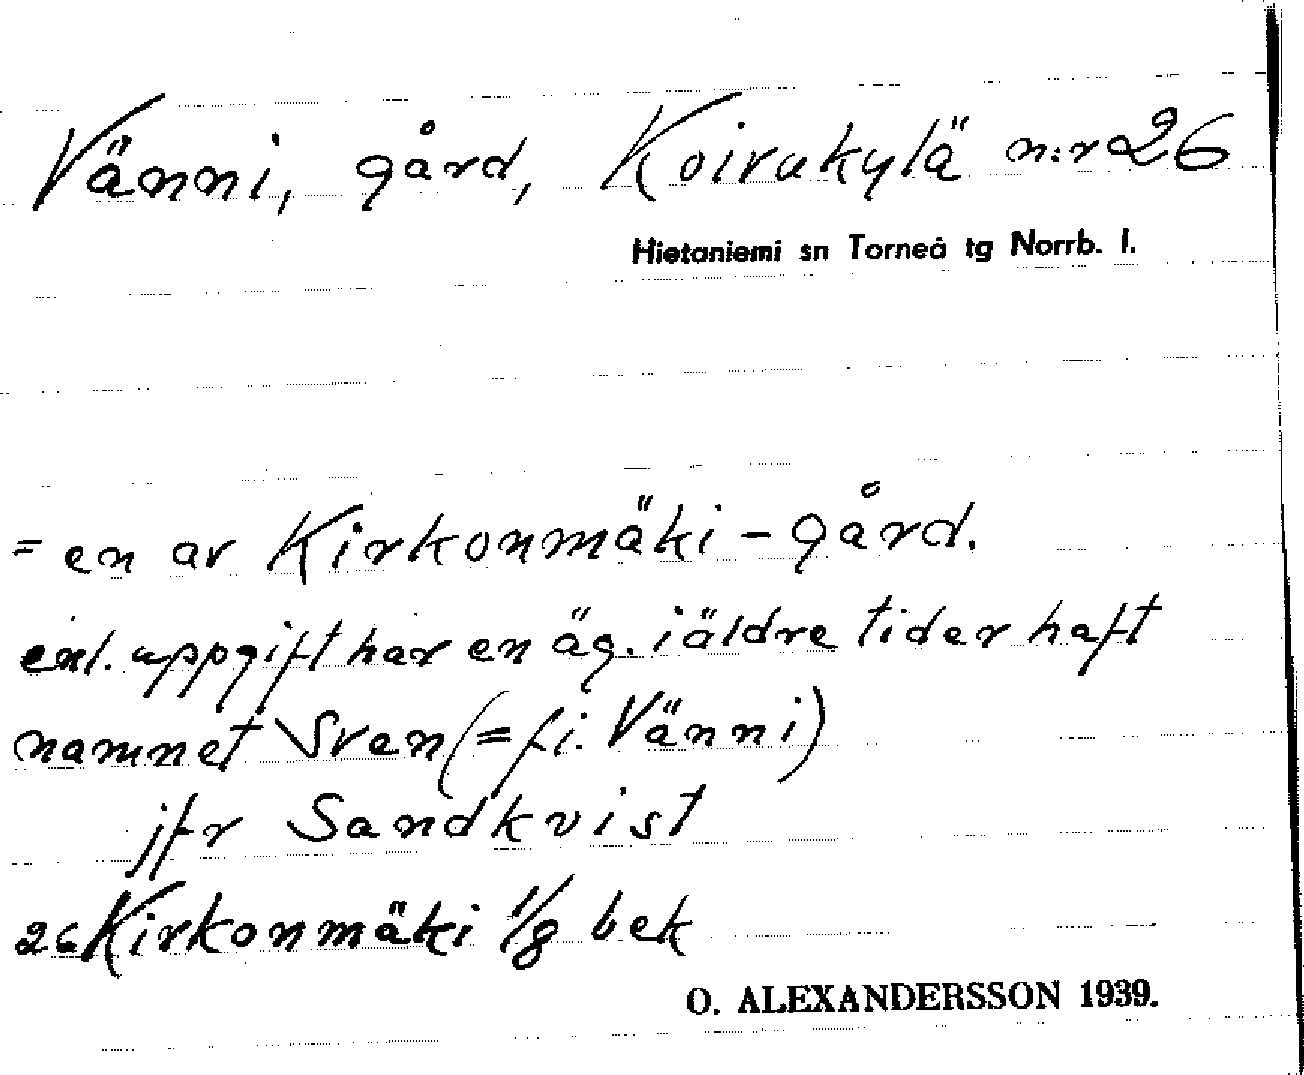 Vänni, gård, Koivukylä n:r 26
Hietaniemi sn Torneå tg Norrb. l.
= en av Kirkonmäki-gård.
enl. uppgift har en äg. i äldre tider haft
namnet Sven (= fi. Vänni)
jfr Sandkvist
26 Kirkonmäki 1/8 bek
O. ALEXANDERSSON 1939.